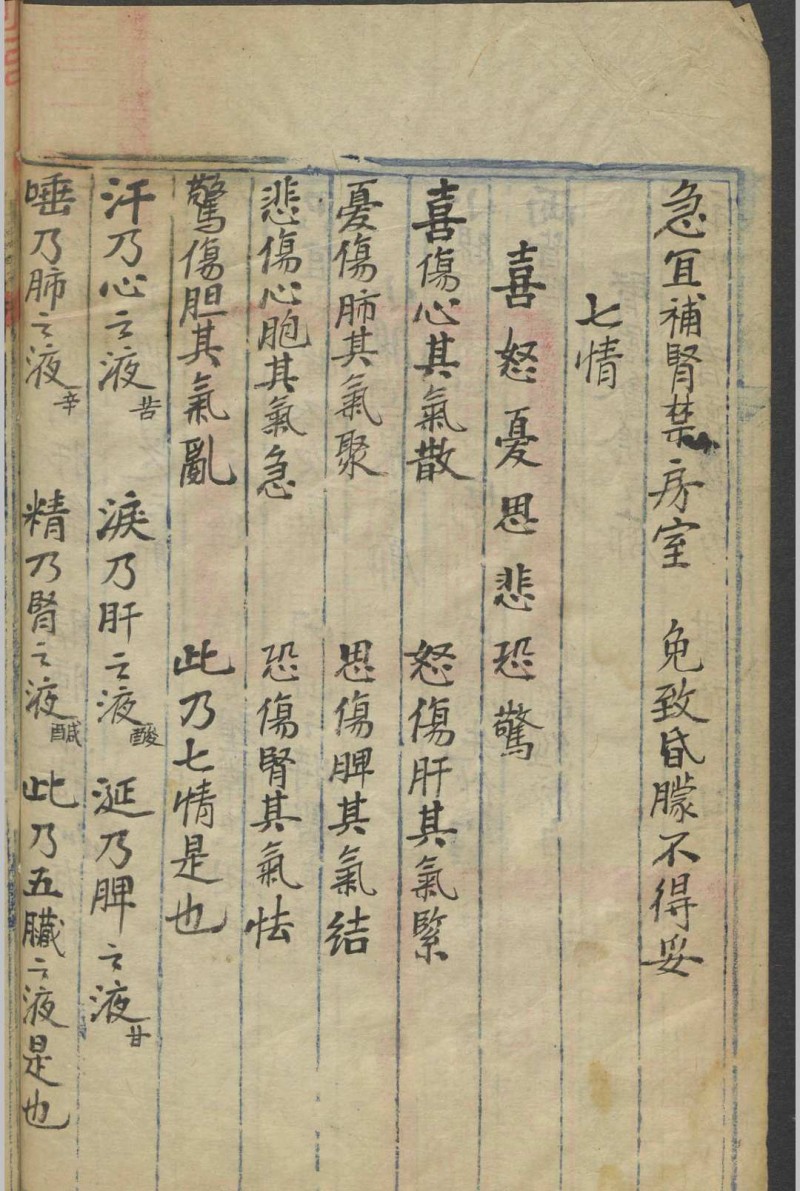 急宜補腎禁房室 免致昏朦不得妥
七情
喜怒憂思悲恐驚
喜傷心其氣散 怒傷肝其氣緊
憂傷肺其氣聚 思傷脾其氣結
悲傷心胞其氣急 恐傷腎其氣怯
驚傷胆其氣亂 此乃七情是也
汗乃心之液苦 淚乃肝之液酸 涎乃脾之液甘
唾乃肺之液辛 精乃腎之液鹹 此乃五臟之液是也